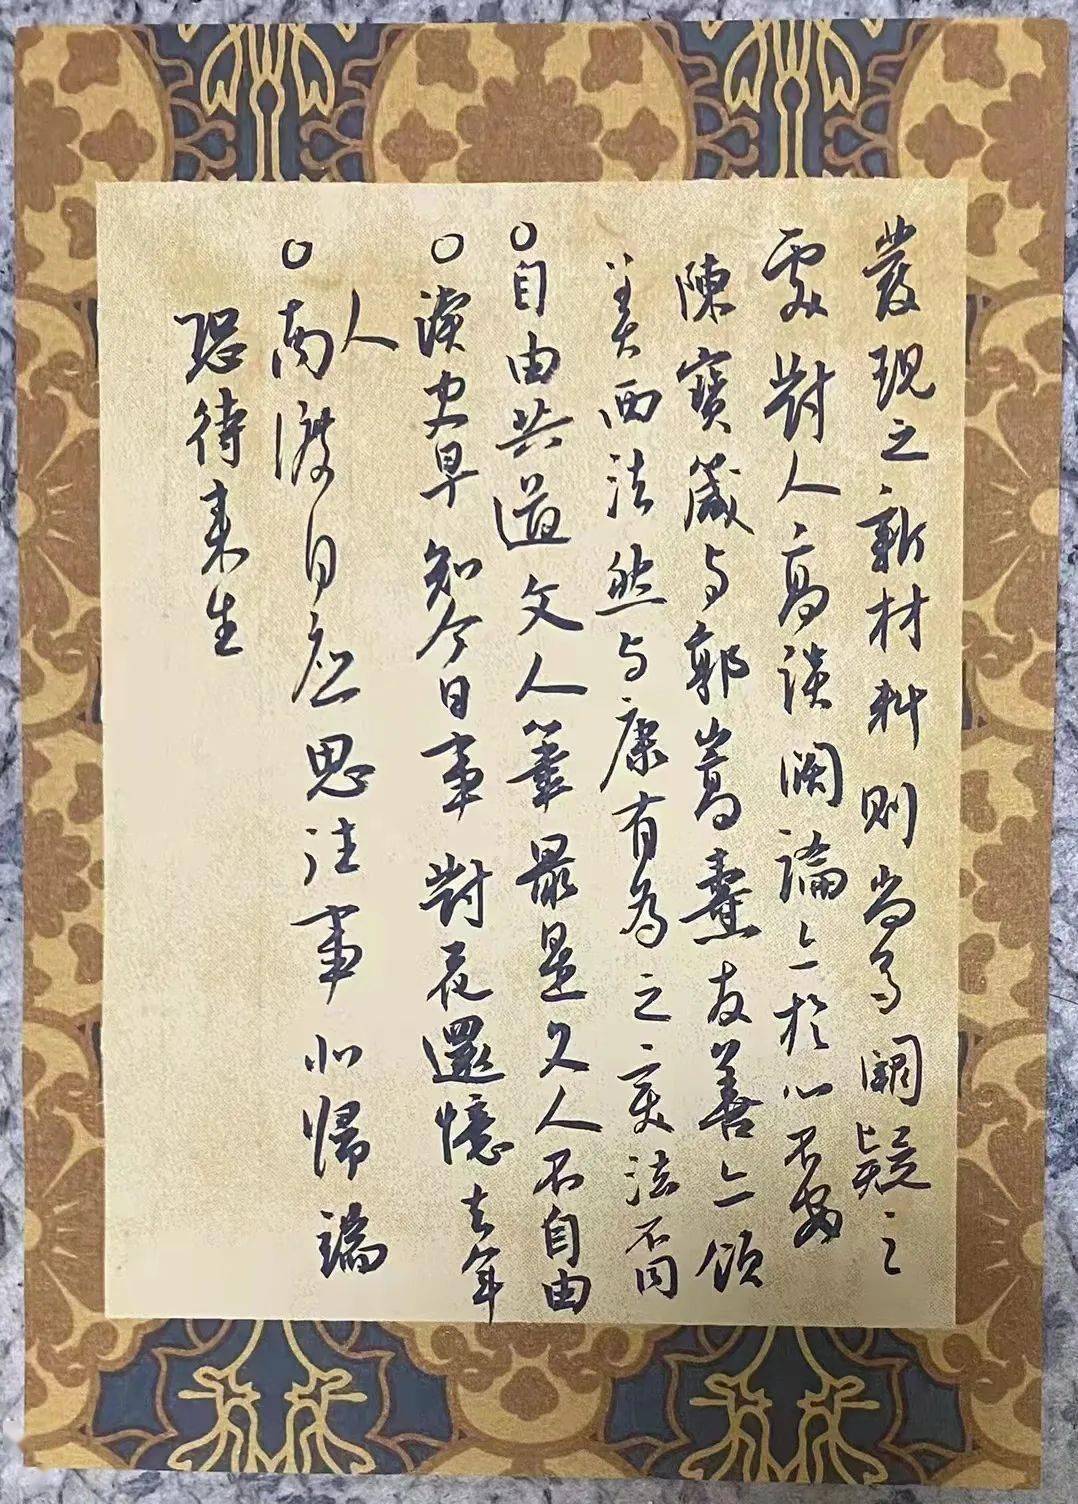 發現之新材料則當為闕疑之
處對人高談闊論亡於心不安
陳寶箴与郭嵩燾友善亡頌
美西法然与康有為之变法不同
○自由共道文人筆最是文人不自由
○讀史早知今日事對花還憶去年
人
○南渡自应思往事北歸端
恐待来生